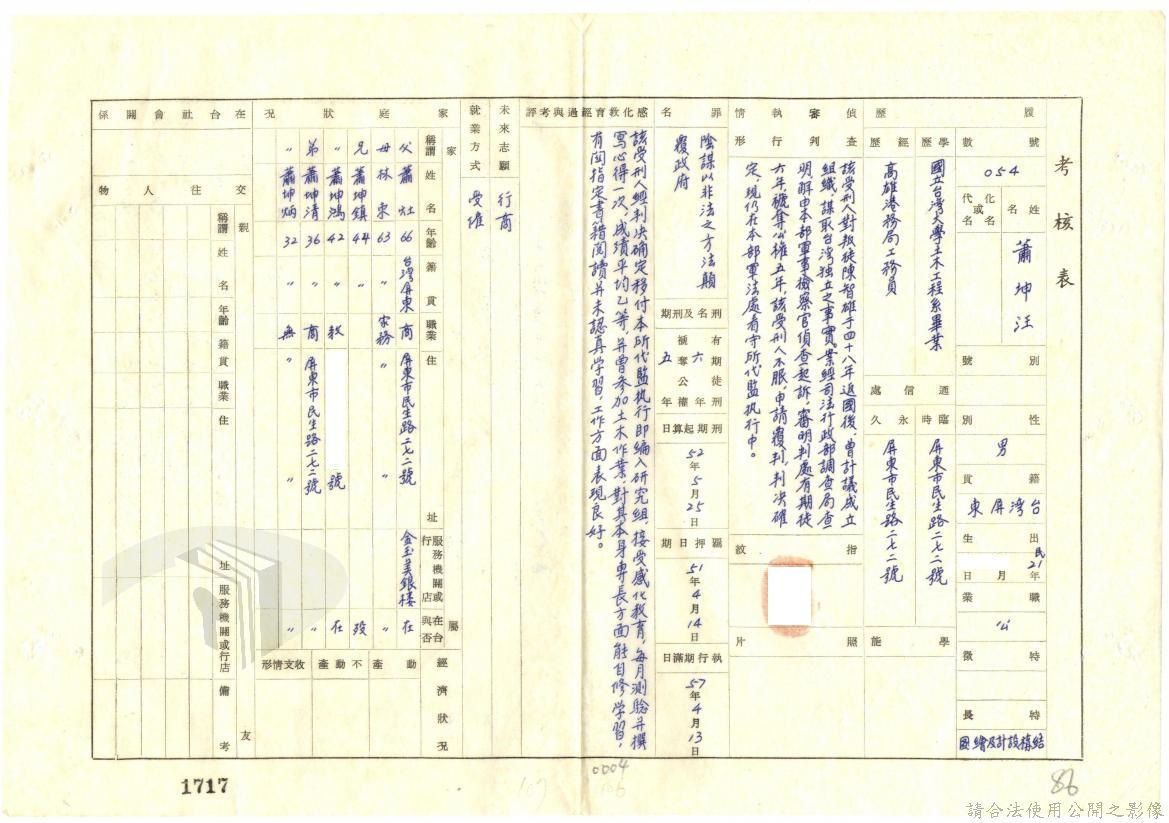 考核表
履歷
號數
054
姓名
蕭坤汪
化名或代名
號別
性別
男
籍貫
台灣屏東
出生
民21年月日
職業
公
特徵
特長
結構設計及繪圖
學歷
國立台灣大學土木工程系畢業
經歷
高雄港務局工務員
通信處
臨時
屏東市民生路二七二號
永久
屏東市民生路二七二號
學能
偵查審判執行情形
該受刑人對叛徒陳智雄于四十八年返國後,曾計議成立
組織,謀取台灣獨立之事實業經司法行政部調查局查
明解由本部軍事檢察官偵查起訴,審明判處有期徒
六年,褫奪公權五年,該受刑人不服,申請覆判,判決確
定,現仍在本部軍法處看守所代監執行中。
指紋
照片
罪名
陰謀以非法之方法顛
覆政府
刑名及刑期
有期徒刑六年
褫奪公權五年
刑期起算日
52年5月25日
羈押日期
51年4月14日
執行期滿日
57年4月13日
感化教育經過與考評
該受刑人經判決確定移付本所代監執行即編入研究組,接受感化教育,每月測驗并撰
寫心得一次,成績平均乙等,并曾參加土木作業,對其本身專長方面能自修學習,
有関指定書籍閱讀并未認真學習,工作方面表現良好。
未來志願
行商
就業方式
受雇
家庭狀況
家屬
稱謂 姓名 年齡 籍貫 職業 住址 服務機關或行店 在台與否
父 蕭灶 66 台灣屏東 商 屏東市民生路二七二號 金玉美銀樓 在
母 林東 63 〃 家務 〃 〃
兄 蕭坤鎮 44 〃 歿
〃 蕭坤鴻 42 教 號 在
弟 蕭坤清 36 〃 商 屏東市民生路二七二號 〃
〃 蕭坤炳 32 〃 無 〃 〃 〃
經濟狀況
動產
不動產
收支情形
在台社會關係
親友
交往人物
稱謂 姓名 年齡 籍貫 職業 住址 服務機關或行店 備考
1717
0004
107
106
86
請合法使用公開之影像